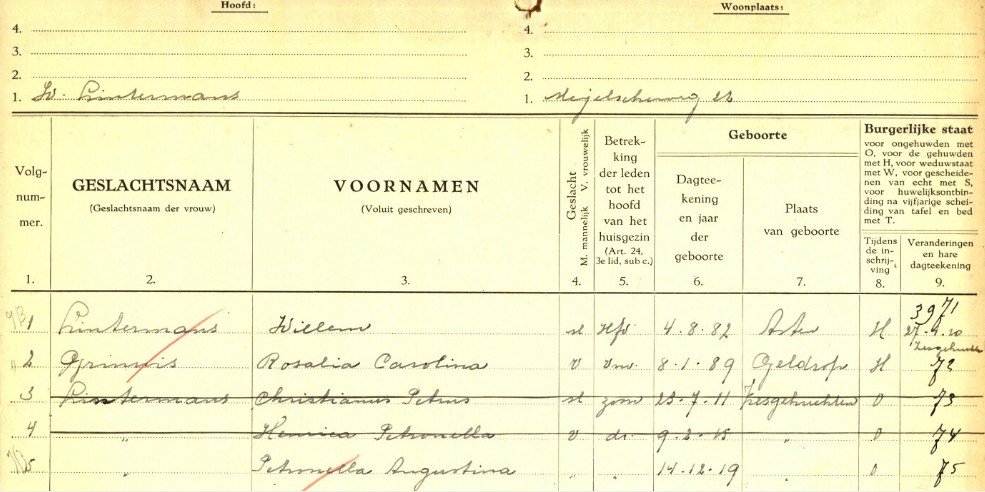 Hoofd: Woonplaats:
4. 4.
3. 3.
2. 2.
1. W. Lintermans 1. Meijelscheweg
Volg-
num-
mer.
GESLACHTSNAAM
(Geslachtsnaam der vrouw)
VOORNAMEN
(Voluit geschreven)
Geslacht
M. mannelijk V. vrouwelijk
Betrek-
king
der leden
tot het
hoofd
van het
huisgezin
(Art. 24,
3e lid, sub c.)
Geboorte
Dagtee-
kening
en jaar
der
geboorte
Plaats
van geboorte
Burgerlijke staat
voor ongehuwden met
O, voor de gehuwden
met H, voor weduwstaat
met W, voor gescheide-
nen van echt met S,
voor huwelijksontbin-
ding na vijfjarige schei-
ding van tafel en bed
met T.
Tijdens
de in-
schrij-
ving
Veranderingen
en hare
dagteekening
1. 2. 3. 4. 5. 6. 7. 8. 9.
3971
1 Lintermans Willem M Hfd 4.8.82 Asten H
2 Prinsis Rosalia Carolina V vrw. 8.1.89 Geldrop H 72
3 Lintermans Christianus Petrus M zoon 23-7-11 O 73
4 " Henrica Petronella V dr. " O 74
5 " Petronella Augustina " 14-12-19 O 75